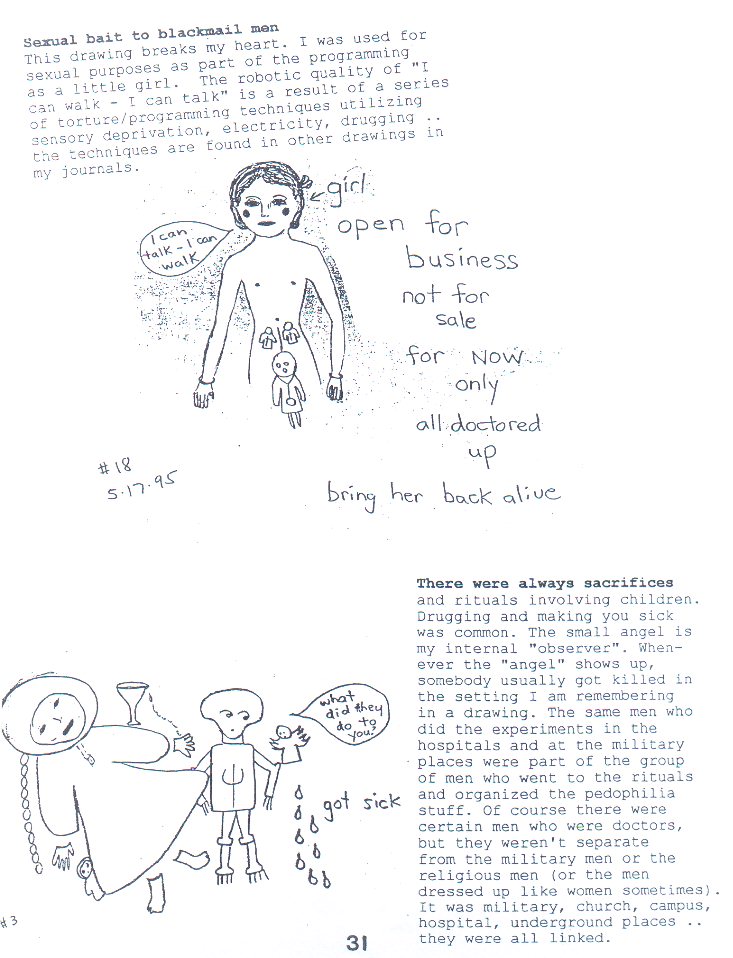 Sexual bait to blackmail men
This drawing breaks my heart. I was used for
sexual purposes as part of the programming
as a little girl. The robotic quality of "I
can walk - I can talk" is a result of a series
of torture/programming techniques utilizing
sensory deprivation, electricity, drugging ..
the techniques are found in other drawings in
my journals.
girl
I can
talk - I can
walk
open for
business
not for
sale
for NOW
only
all doctored
up
bring her back alive
#18
5.17.95
There were always sacrifices
and rituals involving children.
Drugging and making you sick
was common. The small angel is
my internal "observer". When-
ever the "angel" shows up,
somebody usually got killed in
the setting I am remembering
in a drawing. The same men who
did the experiments in the
hospitals and at the military
places were part of the group
of men who went to the rituals
and organized the pedophilia
stuff. Of course there were
certain men who were doctors,
but they weren't separate
from the military men or the
religious men (or the men
dressed up like women sometimes).
It was military, church, campus,
hospital, underground places ..
they were all linked.
what
did they
do to
you?
got sick
#3
31